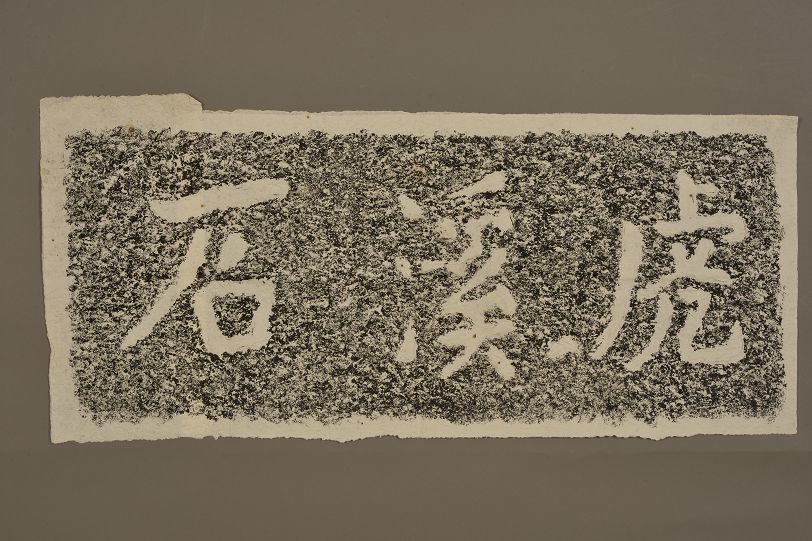 虎溪石